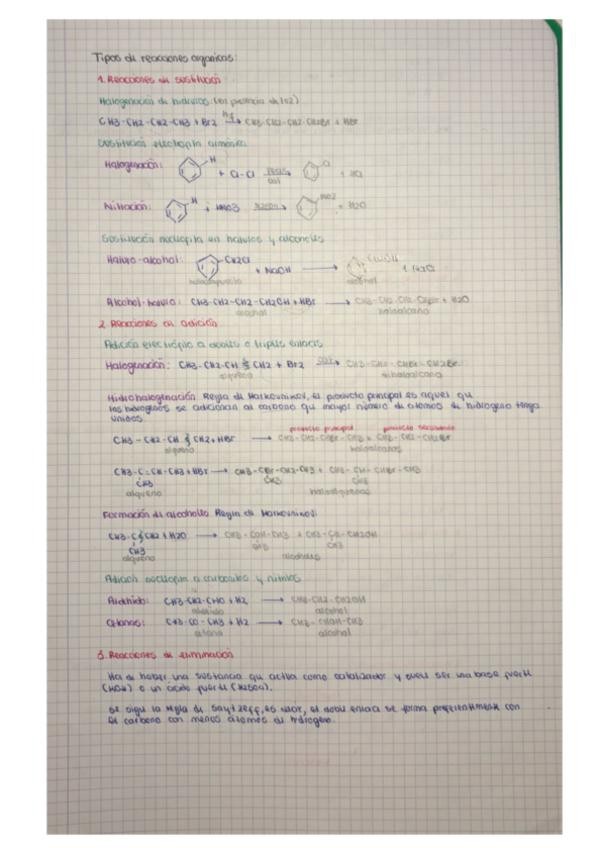 Tipos de reacciones organicas:
1. Reacciones de sustitución
Halogenación de hidruros: (en presencia de luz)
CH3-CH2-CH2-CH3 + Br2 → CH3-CH2-CH2-CH2Br + HBr
Sustitución electrofila aromática
Halogenación: H + Cl-Cl → Cl + HCl
Nitración: H + HNO3 → NO2 + H2O
Sustitución nucleofila en haluros y alcoholes
Haluro-alcohol: CH2Cl + NaOH → CH2OH + NaCl
alcohol
Alcohol-haluro: CH3-CH2-CH2-CH2OH + HBr → CH3-CH2-CH2-CH2Br + H2O
alcohol haloalcano
2. Reacciones de adición
Adición electrófila a dobles o triples enlaces
Halogenación: CH3-CH2-CH = CH2 + Br2 → CH3-CH2-CHBr-CH2Br
alqueno dihaloalcano
Hidrohalogenación Regla de Markovnikov, el producto principal es aquel que
los hidrogenos se adicionan al carbono que mayor número de atomos de hidrogeno tenga
unidos.
producto principal producto secundario
CH3-CH2-CH = CH2 + HBr → CH3-CH2-CHBr-CH3 + CH3-CH2-CH2-CH2Br
alqueno haloalcanos
CH3-C=CH-CH3 + HBr → CH3-CBr-CH2-CH3 + CH3-CH-CHBr-CH3
CH3 CH3 CH3
alqueno
Formación de alcoholes Regla de Markovnikov:
CH3-C=CH2 + H2O → CH3-COH-CH3 + CH3-CH-CH2OH
CH3 CH3 CH3
alqueno alcoholes
Adición nucleofila a carbonilos y nitrilos
Aldehido: CH3-CH2-CHO + H2 → CH3-CH2-CH2OH
aldehido alcohol
Cetonas: CH3-CO-CH3 + H2 → CH3-CHOH-CH3
cetona alcohol
3. Reacciones de eliminación
Ha de haber una sustancia que actua como catalizador y suele ser una base fuerte
(KOH) o un ácido fuerte (H2SO4).
Se sigue la regla de Saytzeff, es decir, el doble enlace se forma preferentemente con
el carbono con menos átomos de hidrogeno.